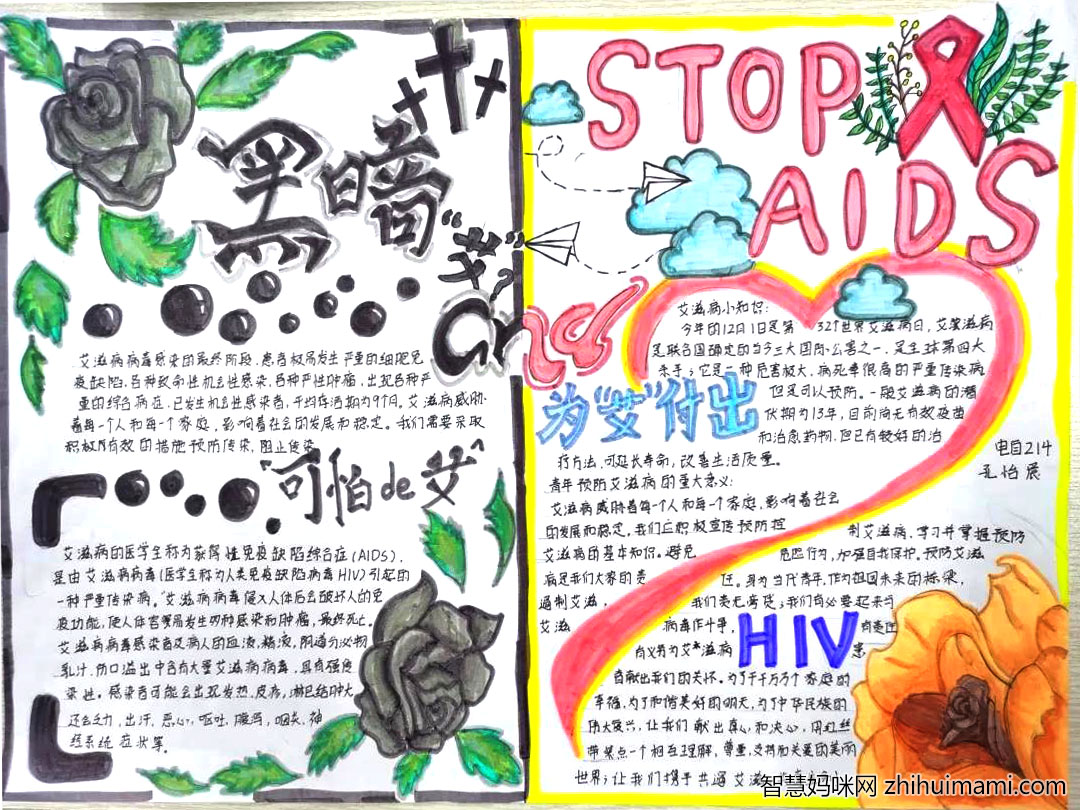 黑暗
"艾"?
and
艾滋病病毒感染的最终阶段,患者极易发生严重的细胞免
疫缺陷,各种致命性机会性感染,各种严性肿瘤,出现各种严
重的综合病症,已发生机会性感染者,平均存活期为9个月。艾滋病威胁
着每一个人和每一个家庭,影响着社会的发展和稳定。我们需要采取
积极有效的措施预防传染,阻止传染
"可怕de艾"
艾滋病的医学全称为获得性免疫缺陷综合症(AIDS),
是由艾滋病病毒(医学全称为人类免疫缺陷病毒HIV)引起的
一种严重传染病。艾滋病病毒侵入人体后会破坏人的免
疫功能,使人体容易发生多种感染和肿瘤,最终死亡。
艾滋病病毒感染者及病人的血液,精液,阴道分泌物
乳汁,伤口溢出中含有大量艾滋病病毒,具有强传
染性,感染者可能会出现发热,皮疹,淋巴结肿大
还会乏力,出汗,恶心,呕吐,腹泻,咽炎,神
经系统症状等。
STOP
AIDS
艾滋病小知识:
今年的12月1日是第32个世界艾滋病日,艾滋病
是联合国确定的当今三大国际公害之一,是全球第四大
杀手;它是一种危害极大,病死率很高的严重传染病
但是可以预防。一般艾滋病的潜
伏期为13年,目前尚无有效疫苗
和治愈药物,但已有较好的治
疗方法,可延长寿命,改善生活质量。
为"艾"付出
电自214
孔怡展
青年预防艾滋病的重大意义:
艾滋病威胁着每一个人和每一个家庭,影响着社会
的发展和稳定,我们应积极宣传预防控制艾滋病,学习并掌握预防
艾滋病的基本知识,避免危险行为,加强自我保护。预防艾滋
病是我们大家的责任。身为当代青年,作为祖国未来的栋梁,
遏制艾滋,我们责无旁贷;我们有必要起来与
艾滋病毒作斗争,有责任
有义务为艾滋病患
HIV
者献出我们的关怀。为了千万个家庭的
幸福,为了和谐美好的明天,为了中华民族的
伟大复兴,让我们献出真心和决心,用红丝
带架点一个相互理解,尊重,支持和关爱的美丽
世界;让我们携手共遏艾滋
智慧妈咪网 zhihuimami.com